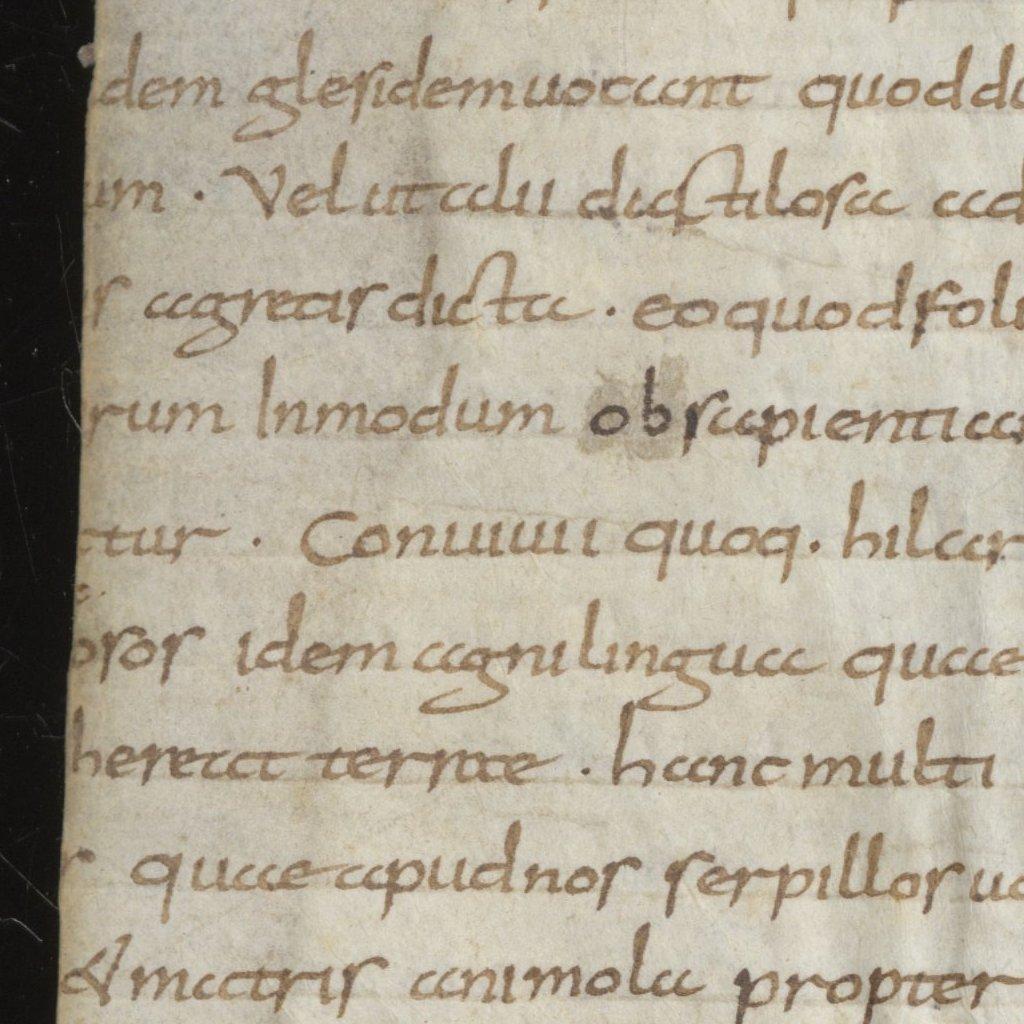 dem glesidem uocant quod du
um . Vel utalii diactilosa ad
s agreasdicta . eo quod folí
rum Inmodum ob sapientia
ctur . Conuiuii quoq. hilar
osos idem agnilingua quae
hereat terrae . hanc multi
r quae apud nos serpillos uo
& matris animola propter